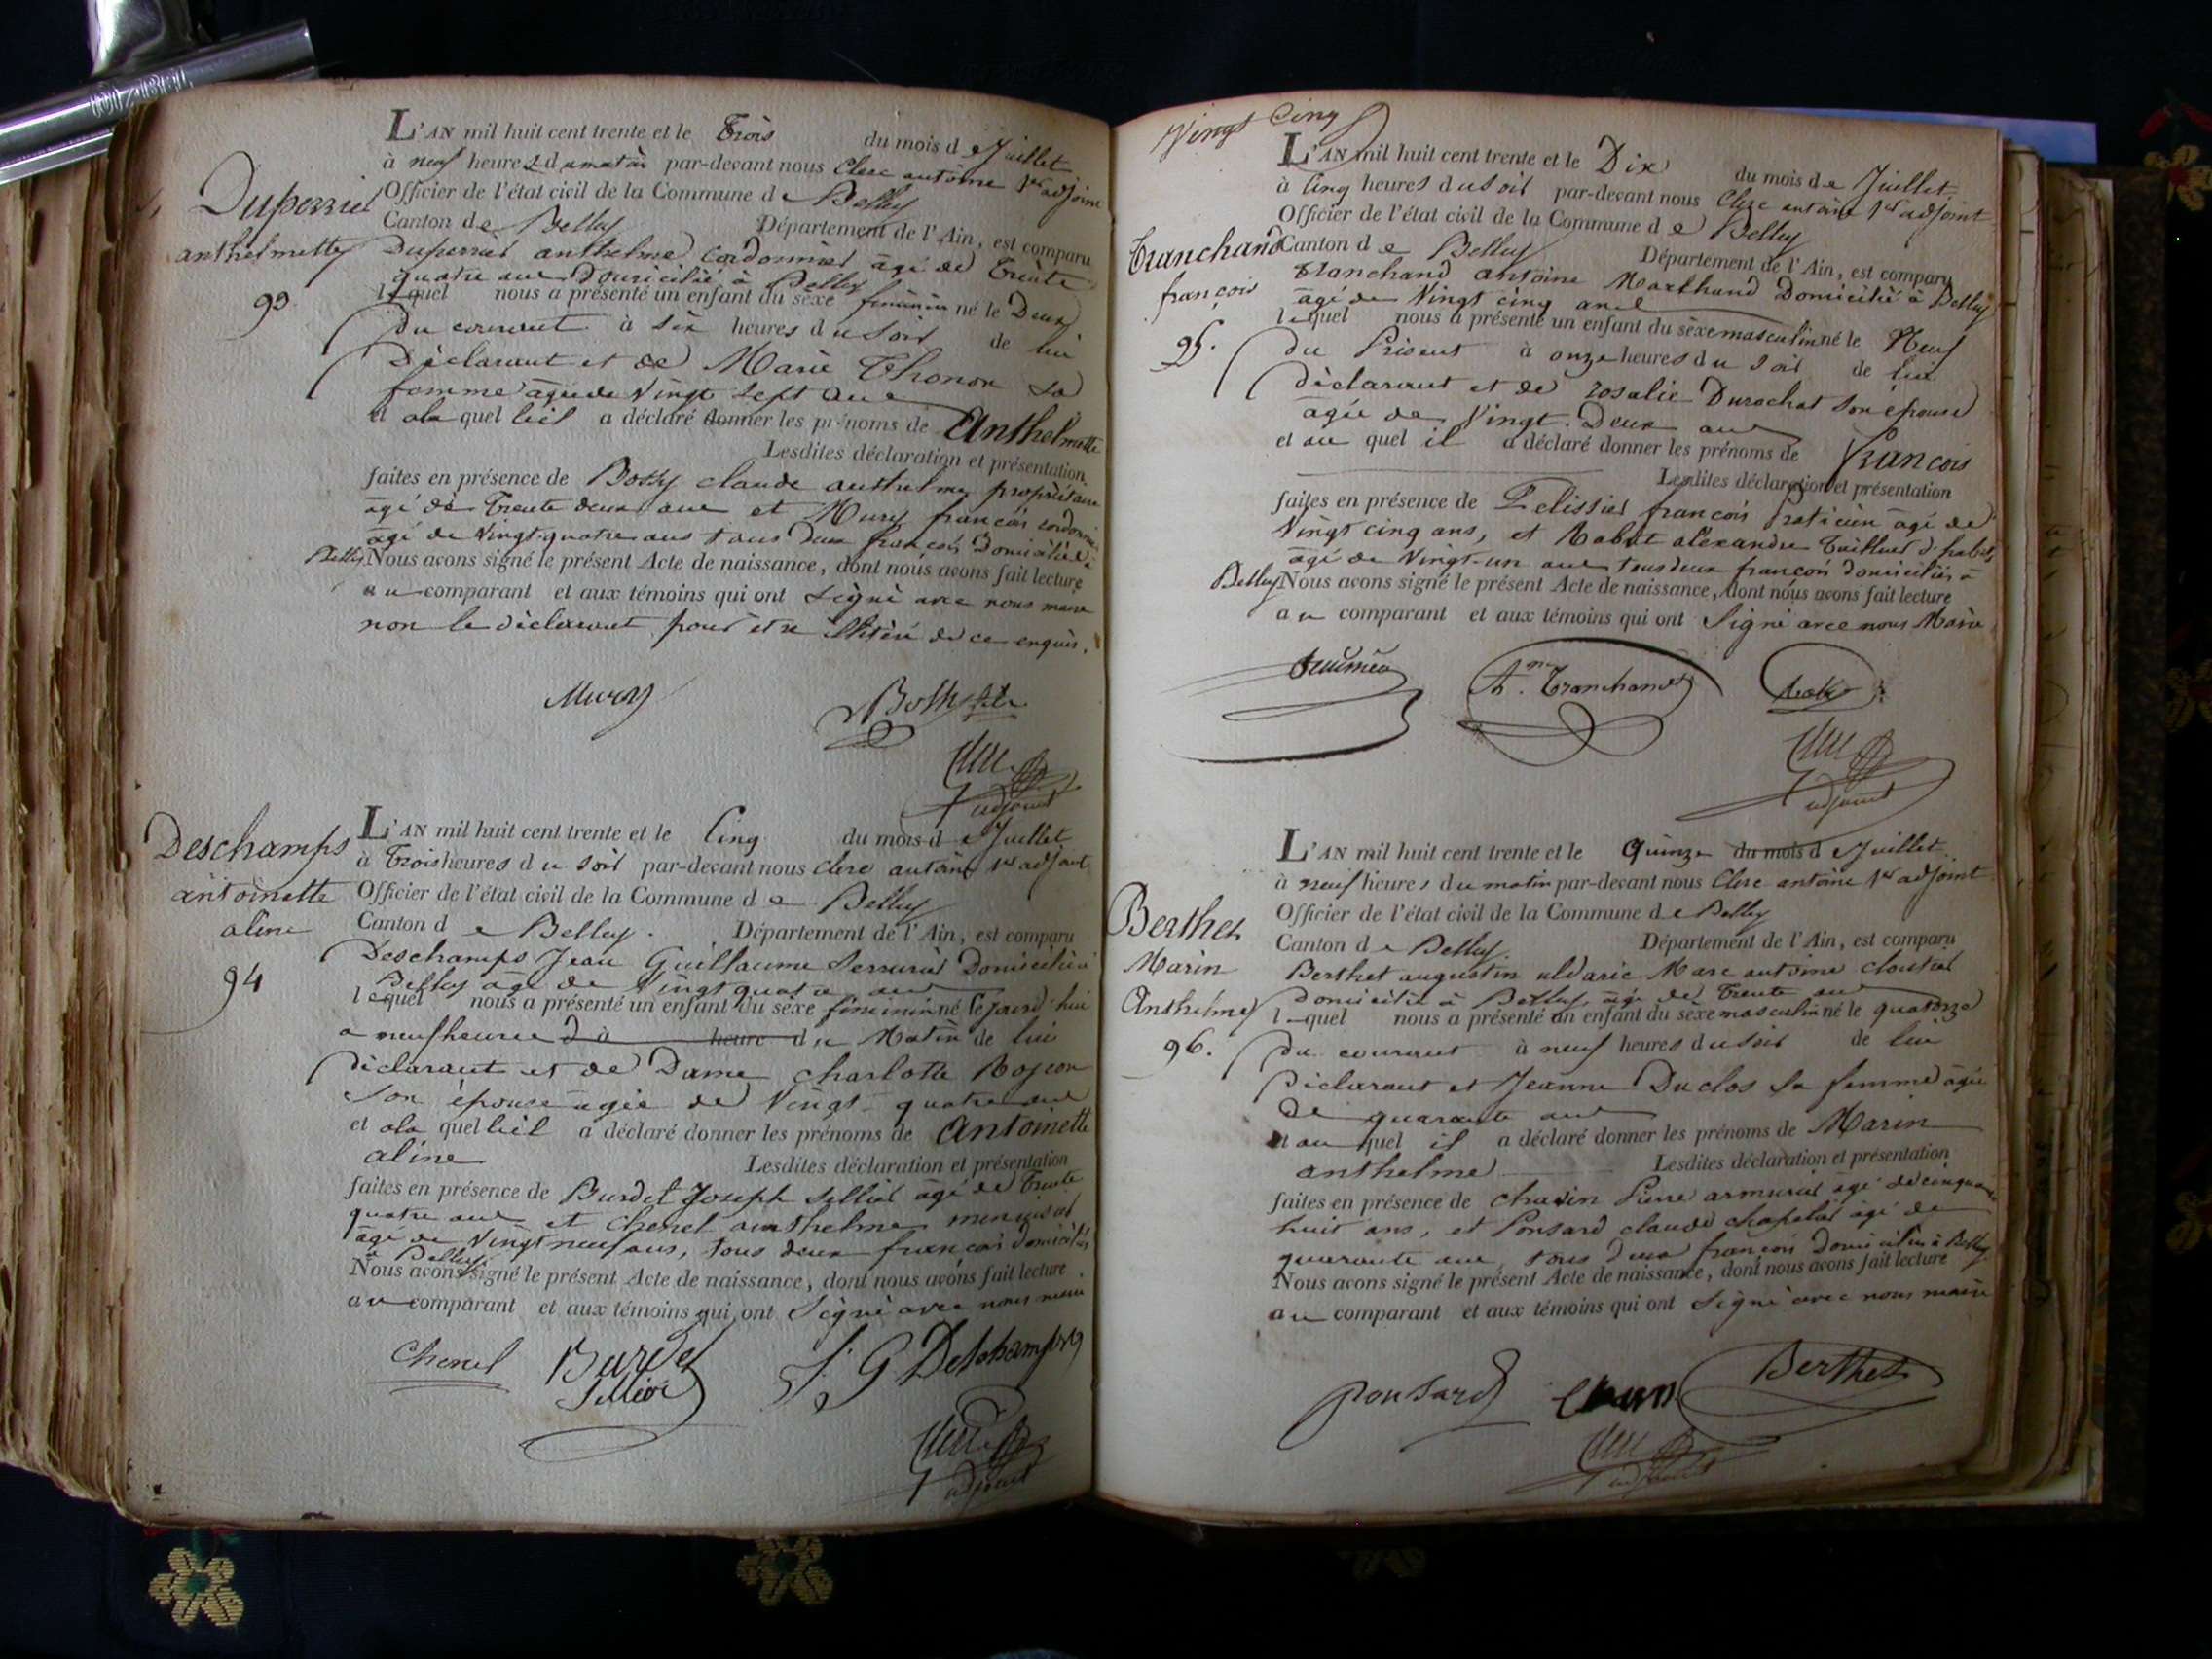 Duperrier
anthelmette
93
L'AN mil huit cent trente et le Trois du mois de Juillet
à neuf heures du matin par-devant nous Clerc antoine 1er adjoint
Officier de l'état civil de la Commune de Belley
Canton de Belley Département de l'Ain, est comparu
Duperrier anthelme cordonnier âgé de Trente
quatre ans Domicilié à Belley
lequel nous a présenté un enfant du sèxe féminin né le Deux
du courant à six heures du soir de lui
Déclarant et de Marie Thonon sa
femme agée de Vingt sept ans
et ala quelle il a déclaré donner les prénoms de Anthelmette
Lesdites déclaration et présentation
faites en présence de Bossy claude anthelme propriétaire
âgé de Trente deux ans et Mury françois cordonnier
âgé de Vingt-quatre ans tous Deux français Domiciliés à
Belley Nous avons signé le présent Acte de naissance, dont nous avons fait lecture
au comparant et aux témoins qui ont signé avec nous maire
non le déclarant pour être illitéré de ce enquis.
Mury
adjoint
Deschamps
antoinette
aline
94
L'AN mil huit cent trente et le Cinq du mois de Juillet
à Trois heures du soir par-devant nous Clerc antoine 1er adjoint
Officier de l'état civil de la Commune de Belley
Canton de Belley. Département de l'Ain, est comparu
Deschamps Jean Guillaume Serrurier Domicilié à
Belley âgé de Vingt quatre ans
lequel nous a présenté un enfant du sèxe féminin né le jourd'hui
a neuf heures d à heure du Matin de lui
déclarant et de Dame charlotte Rojeon
son épouse agée de Vingt-quatre ans
et ala quelle il a déclaré donner les prénoms de Antoinette
aline Lesdites déclaration et présentation
faites en présence de Burdet Joseph sellier âgé de Trente
quatre ans et Chenel anthelme menuisier
âgé de Vingt neuf ans, tous deux français domiciliés
à Belley
Nous avons signé le présent Acte de naissance, dont nous avons fait lecture
au comparant et aux témoins qui ont Signé avec nous maire
Chenel Burdet J. G Deschamps
Sellier
adjoint
Vingt Cinq
Tranchand
françois
95.
L'AN mil huit cent trente et le Dix du mois de Juillet
à Cinq heures du soir par-devant nous Clerc antoine 1er adjoint
Officier de l'état civil de la Commune de Belley
Canton de Belley Département de l'Ain, est comparu
Tranchand antoine Marchand Domicilié à Belley
âgé de Vingt cinq ans
lequel nous a présenté un enfant du sèxe masculin né le Neuf
du Présent à onze heures du soir de lui
déclarant et de rosalie Durochat son épouse
âgée de Vingt-Deux ans
et au quel il a déclaré donner les prénoms de françois
Lesdites déclaration et présentation
faites en présence de Pelissier françois Praticien âgé de
Vingt cinq ans, et Rabut alexandre Tailleur d'habits
âgé de Vingt-un ans tous deux français domiciliés à
Belley Nous avons signé le présent Acte de naissance, dont nous avons fait lecture
au comparant et aux témoins qui ont Signé avec nous Maire
An. Tranchand
adjoint
Berthet
Marin
Anthelme
96.
L'AN mil huit cent trente et le Quinze du mois de Juillet
à neuf heures du matin par-devant nous Clerc antoine 1er adjoint
Officier de l'état civil de la Commune de Belley
Canton de Belley. Département de l'Ain, est comparu
Berthet augustin uldaric Marc antoine cloutier
domicilié à Belley, âgé de Trente ans
lequel nous a présenté un enfant du sèxe masculin né le quatorze
du courant à neuf heures du soir de lui
Déclarant et Jeanne Duclos sa femme âgée
de quarante ans
et au quel il a déclaré donner les prénoms de Marin
anthelme Lesdites déclaration et présentation
faites en présence de chavin Pierre armurier âgé de cinquante
huit ans, et Ponsard claude chapelier âgé de
quarante ans tous deux français Domiciliés à Belley
Nous avons signé le présent Acte de naissance, dont nous avons fait lecture
au comparant et aux témoins qui ont Signé avec nous maire
Ponsard Berthet
adjoint